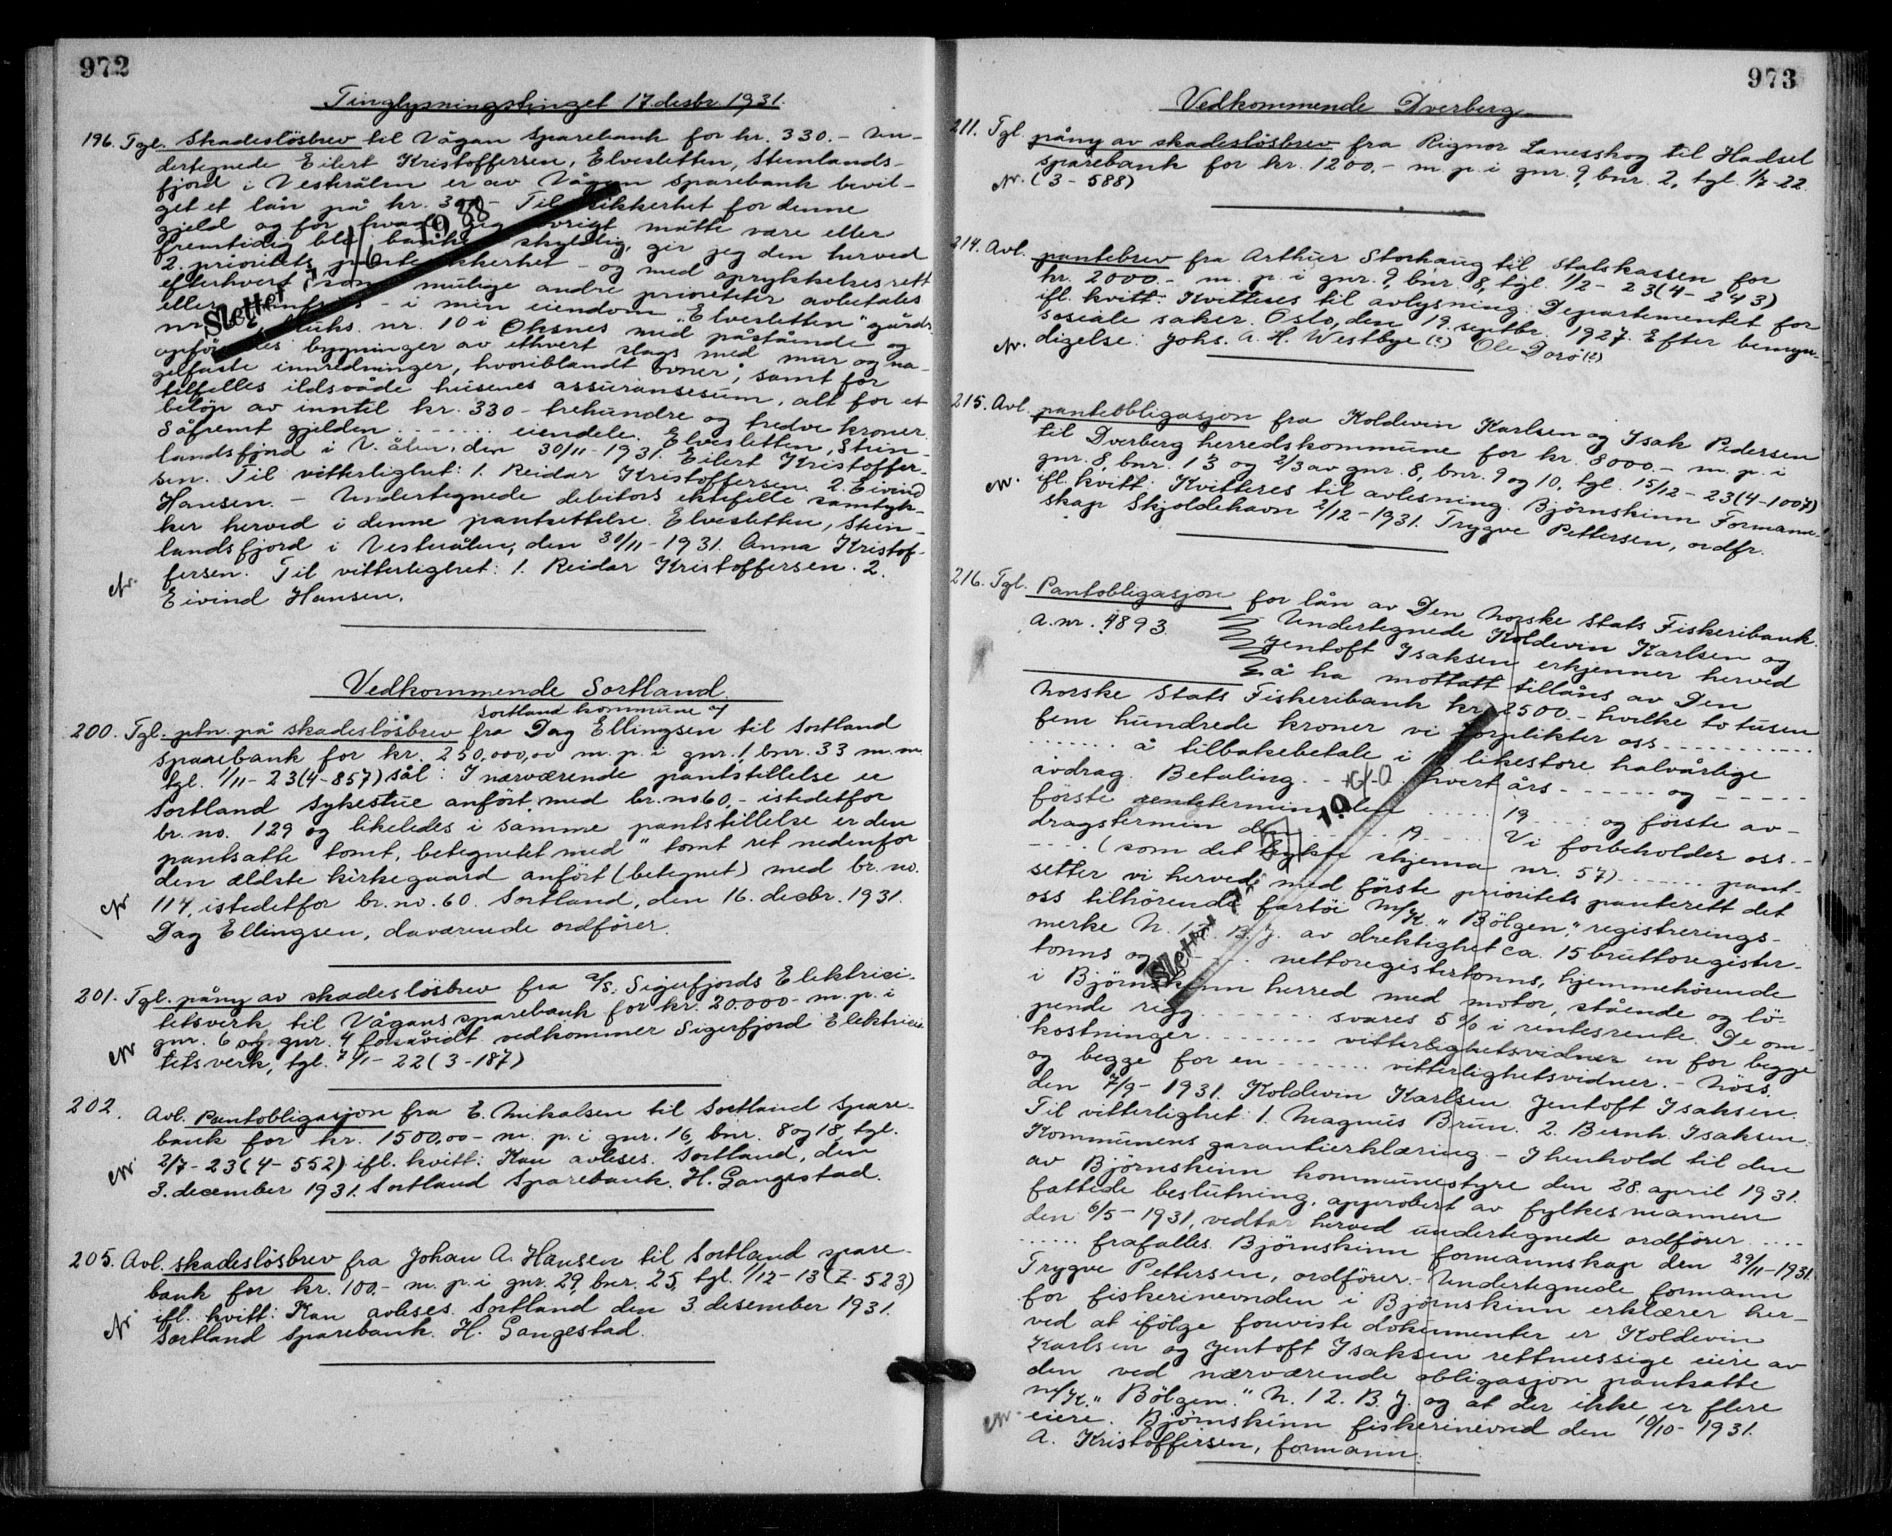 972
Tinglysningstinget 17. desbr. 1931.
196. Tgl. Skadeslösbrev til Vågan Sparebank for kr. 330.- Un-
dertegnede Eilert Kristoffersen, Elvesletten, Steinlands-
fjord i Vesterålen er av Vågan Sparebank bevil-
get et lån på kr. Til sikkerhet for denne
gjeld og for hvad jeg övrigt måtte være eller
fremtidig bli banken skyldig, gir jeg den herved
2. prioritets sikkerhet - og med oprykkelsesrett
efterhvert som mulige andre prioriteter avbetales
eller - i min eiendom "Elvesletten" gårds
nr. bruks. nr. 10 i Öksnes med påstående og
opförendes bygninger av ethvert slags med mur og na-
gelfaste innredninger, hvoriblandt ovner, samt for
tilfelles ildsvåde husenes assuransesum, alt for et
belöp av inntil kr. 330 - trehundre og tredve kroner.
Såfremt gjelden ....... eiendele. Elvesletten, Stein-
landsfjord i V. ålen, den 30/11 - 1931. Eilert Kristoffer-
sen. Til vitterlighet: 1. Reidar Kristoffersen. 2. Eivind
Hansen. - Undertegnede debitors ektefelle samtyk-
ker herved i denne pantsettelse. Elvesletten, Stein-
landsfjord i Vesterålen, den 30/11 - 1931. Anna Kristof-
fersen. Til vitterlighet: 1. Reidar Kristoffersen. 2.
Eivind Hansen.
Slettet 1/6 1988
Vedkommende Sortland.
Sortland kommune v/
200. Tgl. ptn. på skadeslösbrev fra Dag Ellingsen til Sortland
Sparebank for kr. 250,000,00 m. p. i gnr. 1, bnr. 33 m. m.
tgl. 1/11 - 23 (4-857) sål: I nærværende pantstillelse er
Sortland Sykestue anfört med br. no 60, - istedetfor
br. no. 129 og likeledes i samme pantstillelse er den
pantsatte tomt, betegnetet med " tomt ret nedenfor
den ældste kirkegaard anfört (betegnet) med br. no.
114, istedetfor br. no. 60. Sortland, den 16. desbr. 1931.
Dag Ellingsen, daværende ordförer.
201. Tgl. påny av skadeslösbrev fra A/S. Sigerfjords Elektrici-
tetsverk til Vågans sparebank for kr. 20.000.- m. p. i
gnr. 6 og gnr. 4 forsåvidt vedkommer Sigerfjord Elektrici-
tetsverk, tgl. 7/1 - 22 (3-187)
202. Avl. Pantobligasjon fra E. Nikalsen til Sortland Spare-
bank for kr. 1500,00 - m. p. i gnr. 16, bnr. 8 og 18, tgl.
2/7 - 23 (4-552) ifl. kvitt: Kan avleses. Sortland, den
3. december 1931. Sortland Sparebank. H. Gangestad.
205. Avl. skadeslösbrev fra Johan A. Hansen til Sortland spare-
bank for kr. 100.- m. p. i gnr. 29, bnr. 25, tgl. 1/12 - 13 (Z-523)
ifl. kvitt: Kan avleses. Sortland den 3. desember 1931.
Sortland Sparebank. H. Gangestad.
973
Vedkommende Dverberg.
211. Tgl. påny av skadeslösbrev fra Rignor Lanesskog til Hadsel
sparebank for kr. 1200.- m. p. i gnr. 9, bnr. 2, tgl. 1/7-22.
(3-588)
214. Avl. pantebrev fra Arthur Storhaug til Statskassen for
kr. 2000.- m. p. i gnr. 9, bnr. 8, tgl. 1/2 - 23 (4-243)
ifl. kvitt: Kvitteres til avlysning. Departementet for
sosiale saker. Oslo, den 19. septbr. 1927. Efter bemyn-
digelse: Johs. A. H. Westbye (?) Ole Dorö (?)
215. Avl. panteobligasjon fra Koldevin Karlsen og Isak Pedersen
til Dverberg herredskommune for kr. 8000.- m. p. i
gnr. 8, bnr. 13 og 2/3 av gnr. 8, bnr. 9 og 10, tgl. 15/12 - 23 (4-1007)
ifl. kvitt: Kvitteres til avlesning. Björnskinn Formann-
skap Skjoldehavn 2/12 - 1931. Trygve Pettersen, ordfr.
216. Tgl. Pantobligasjon for lån av Den Norske Stats Fiskeribank.
A. nr. 4893. Undertegnede Koldevin Karlsen og
Jentoft Isaksen erkjenner herved
å ha mottatt tillåns av Den
Norske Stats Fiskeribank kr. 2500.- hvilke to tusen
fem hundrede kroner vi forplikter oss ........
....... å tilbakebetale i likestore halvårlige
avdrag. Betaling hvert års ...... og ......
förste rentetermin den ...... 19 .... og förste av-
dragstermin den ...... 19 .... Vi forbeholder oss ..
.... (som det trykte skjema nr. 57) ...... pant-
setter vi herved med förste prioritets panterett det
oss tilhörende fartöi M/K. "Bölgen", registrerings-
merke N. 12. B. J. av drektighet ca. 15 bruttoregister-
tonns og .... nettoregistertonns, hjemmehörende
i Björnskinn herred med motor, stående og lö-
pende rigg ....... svares 5 % i rentesrente. De om-
kostninger ....... vitterlighetsvidner en for begge
og begge for en ....... vitterlighetsvidner. - Nöss
den 7/9 - 1931. Koldevin Karlsen. Jentoft Isaksen.
Til vitterlighet: 1. Magnus Brun. 2. Bernh. Isaksen.
Kommunens garantierklæring. - I henhold til den
av Björnskinn kommunestyre den 28. april 1931.
fattede beslutning, approbert av fylkesmannen
den 6/5 - 1931, vedtar herved undertegnede ordförer ....
...... frafalles. Björnskinn formannskap den 29/11 - 1931.
Trygve Pettersen, ordförer. - Undertegnede formann
for fiskerinevnden i Björnskinn erklærer her-
ved at ifölge foreviste dokumenter er Koldevin
Karlsen og Jentoft Isaksen rettmessige eiere av
den ved nærværende obligasjon pantsatte
M/K. "Bölgen." N. 12. B. J. og at der ikke er flere
eiere. Björnskinn fiskerinevnd den 10/10 - 1931.
A. Kristoffersen, formann.
Slettet